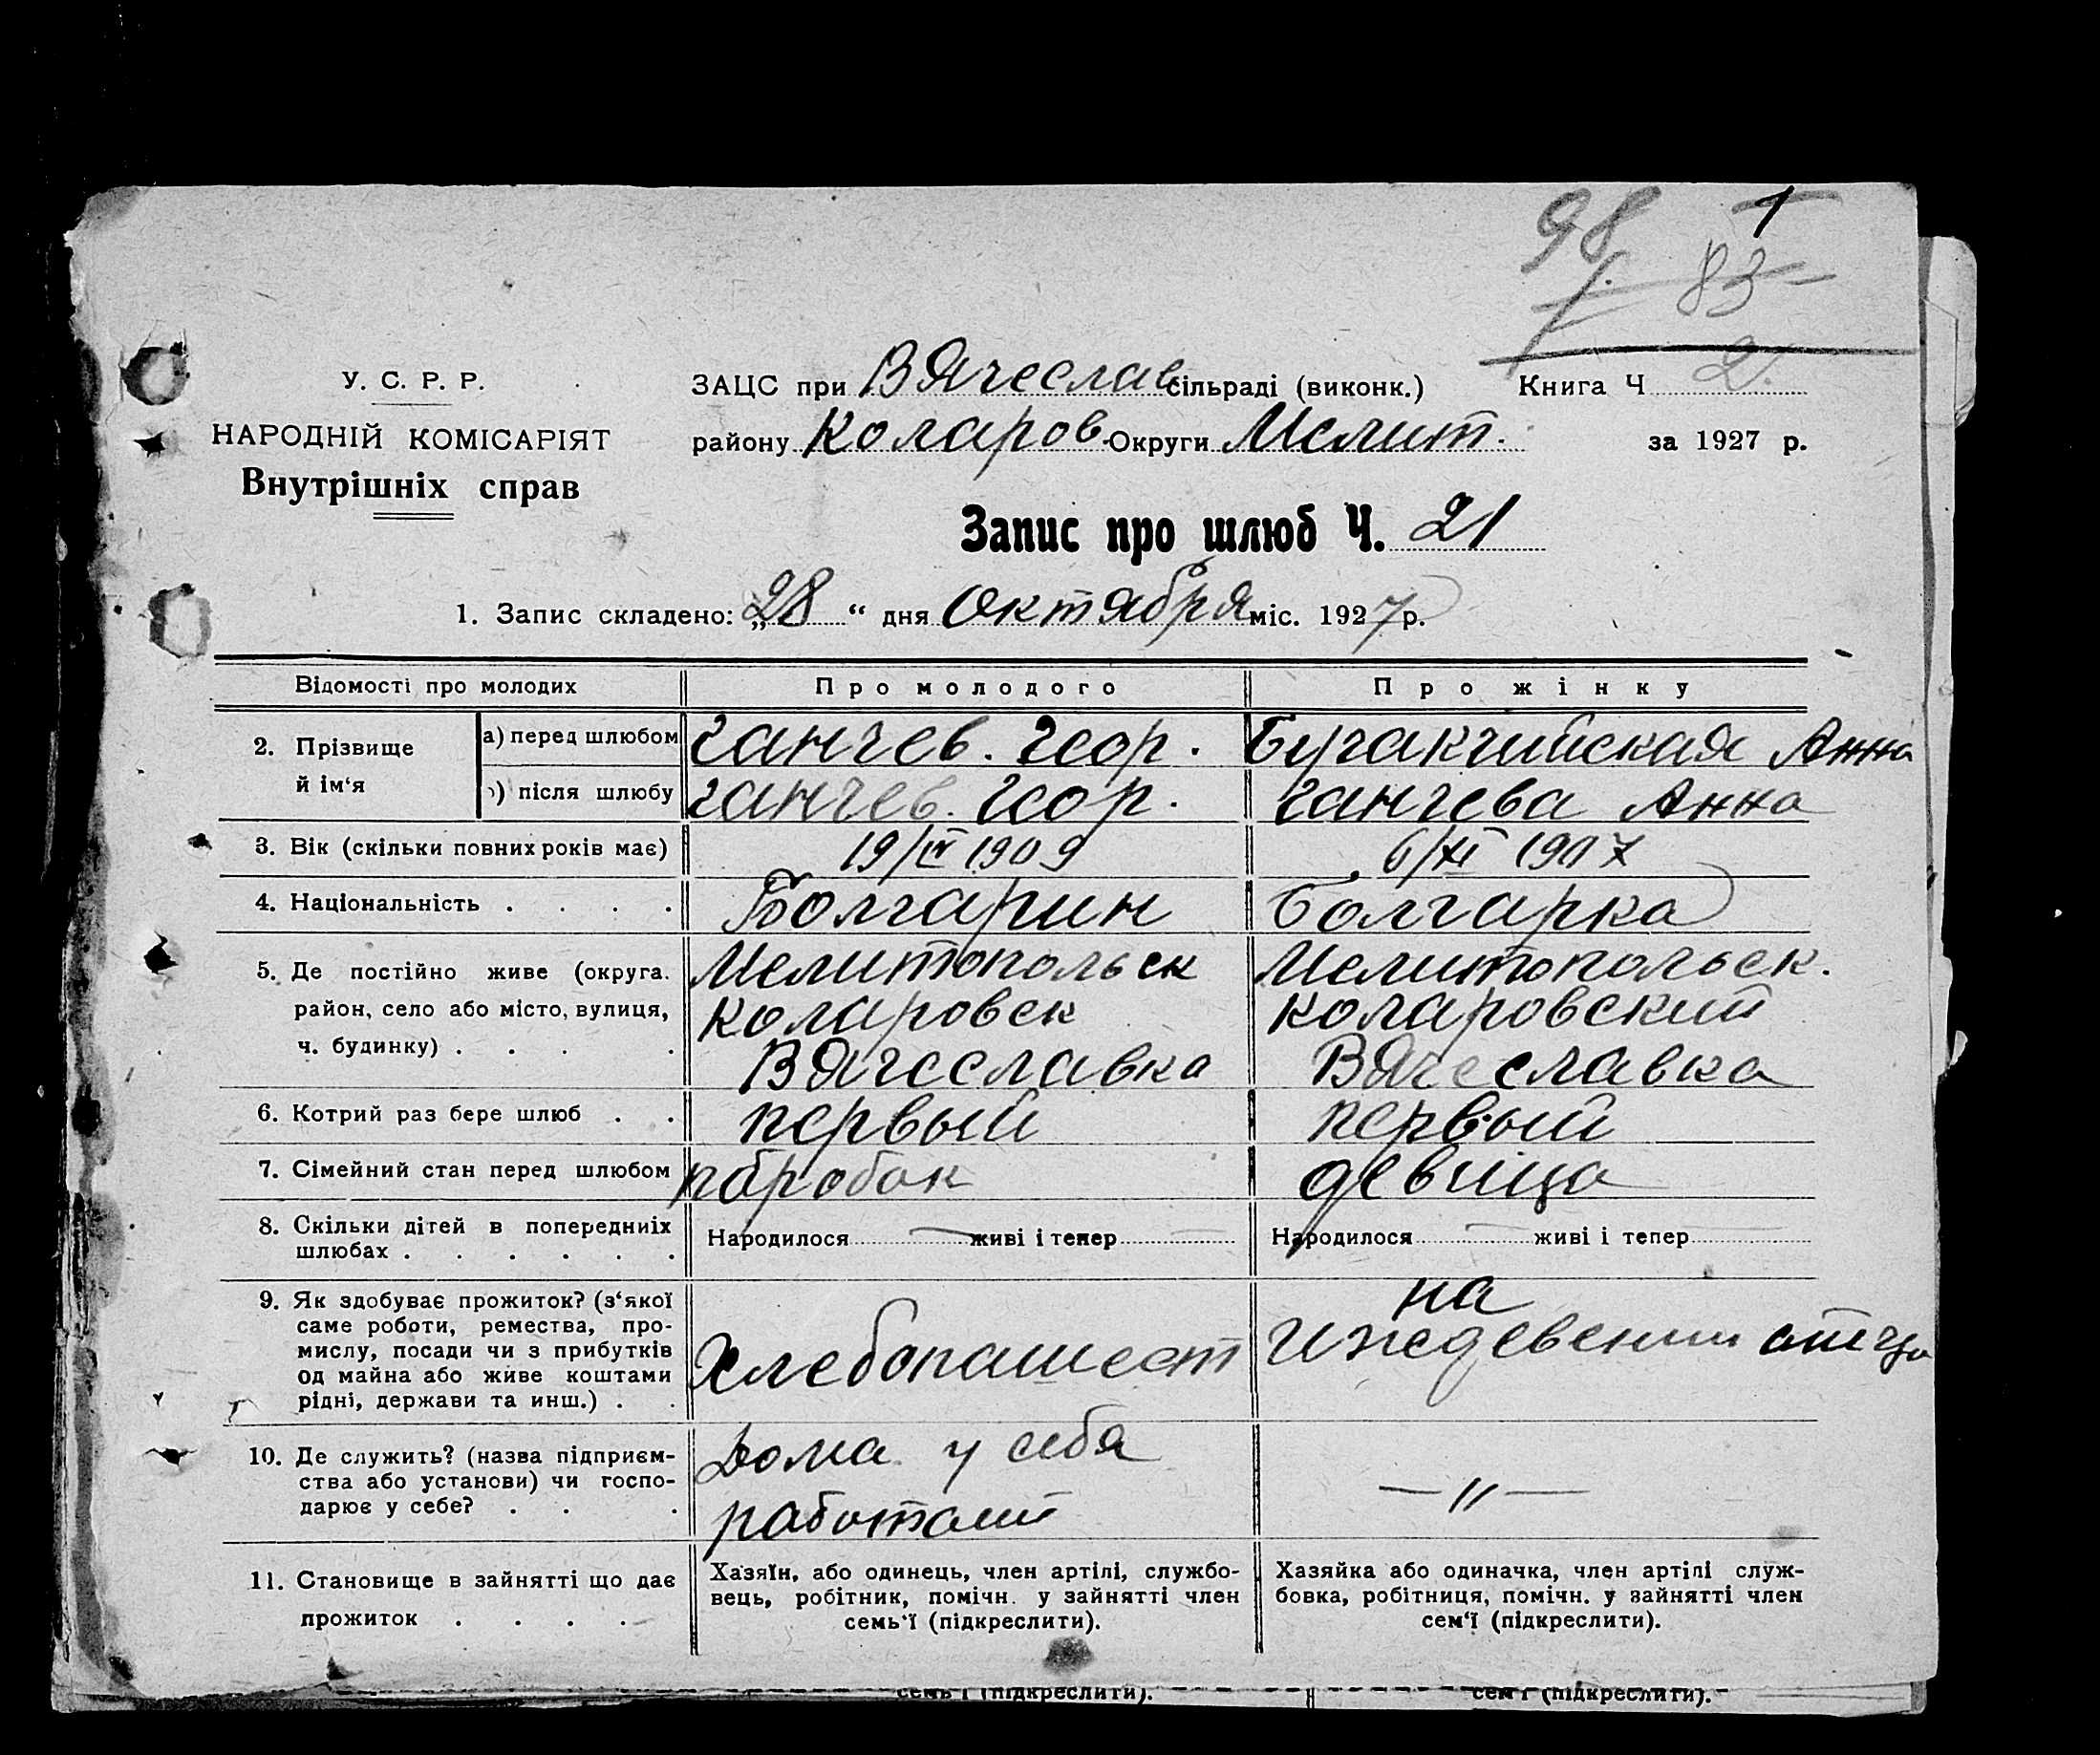 98 1
83
У. С. Р. Р.
НАРОДНІЙ КОМІСАРІЯТ
Внутрішніх справ
ЗАЦС при Вячеслав сільраді (виконк.) Книга Ч 2.
району Коларов. Округи Мелит. за 1927 р.
Запис про шлюб Ч. 21
1. Запис складено: „28“ дня Октября міс. 1927 р.
Відомості про молодих Про молодого Про жінку
2. Прізвище й ім‘я
а) перед шлюбом Ганчев. Геор. Бугакчийская Анна
б) після шлюбу Ганчев. Геор. Ганчева Анна
3. Вік (скільки повних років має) 19/IV 1909 6/XI 1907
4. Національність . . . . Болгарин Болгарка
5. Де постійно живе (округа. Мелитопольск Мелитопольск.
район, село або місто, вулиця, Коларовск Коларовский
ч. будинку) . . . . Вячеславка Вячеславка
6. Котрий раз бере шлюб . . первый первый
7. Сімейний стан перед шлюбом паробок девица
8. Скільки дітей в попередниіх
шлюбах . . . . . . Народилося — живі і тепер — Народилося — живі і тепер —
9. Як здобуває прожиток? (з‘якої на
саме роботи, ремества, про-
мислу, посади чи з прибутків Хлебопашест Иждевении отца
од майна або живе коштами
рідні, держави та инш.) . .
10. Де служить? (назва підприєм- Дома у себя
ства або установи) чи госпо- —〃—
дарює у себе? . . . работает
11. Становище в зайнятті що дає
прожиток . . . .
Хазяїн, або одинець, член артілі, службо-
вець, робітник, помічн. у зайнятті член
семь‘ї (підкреслити).
Хазяйка або одиначка, член артілі служ-
бовка, робітниця, помічн. у зайнятті член
сем‘ї (підкреслити).
семь‘ї (підкреслити). сем‘ї (підкреслити).